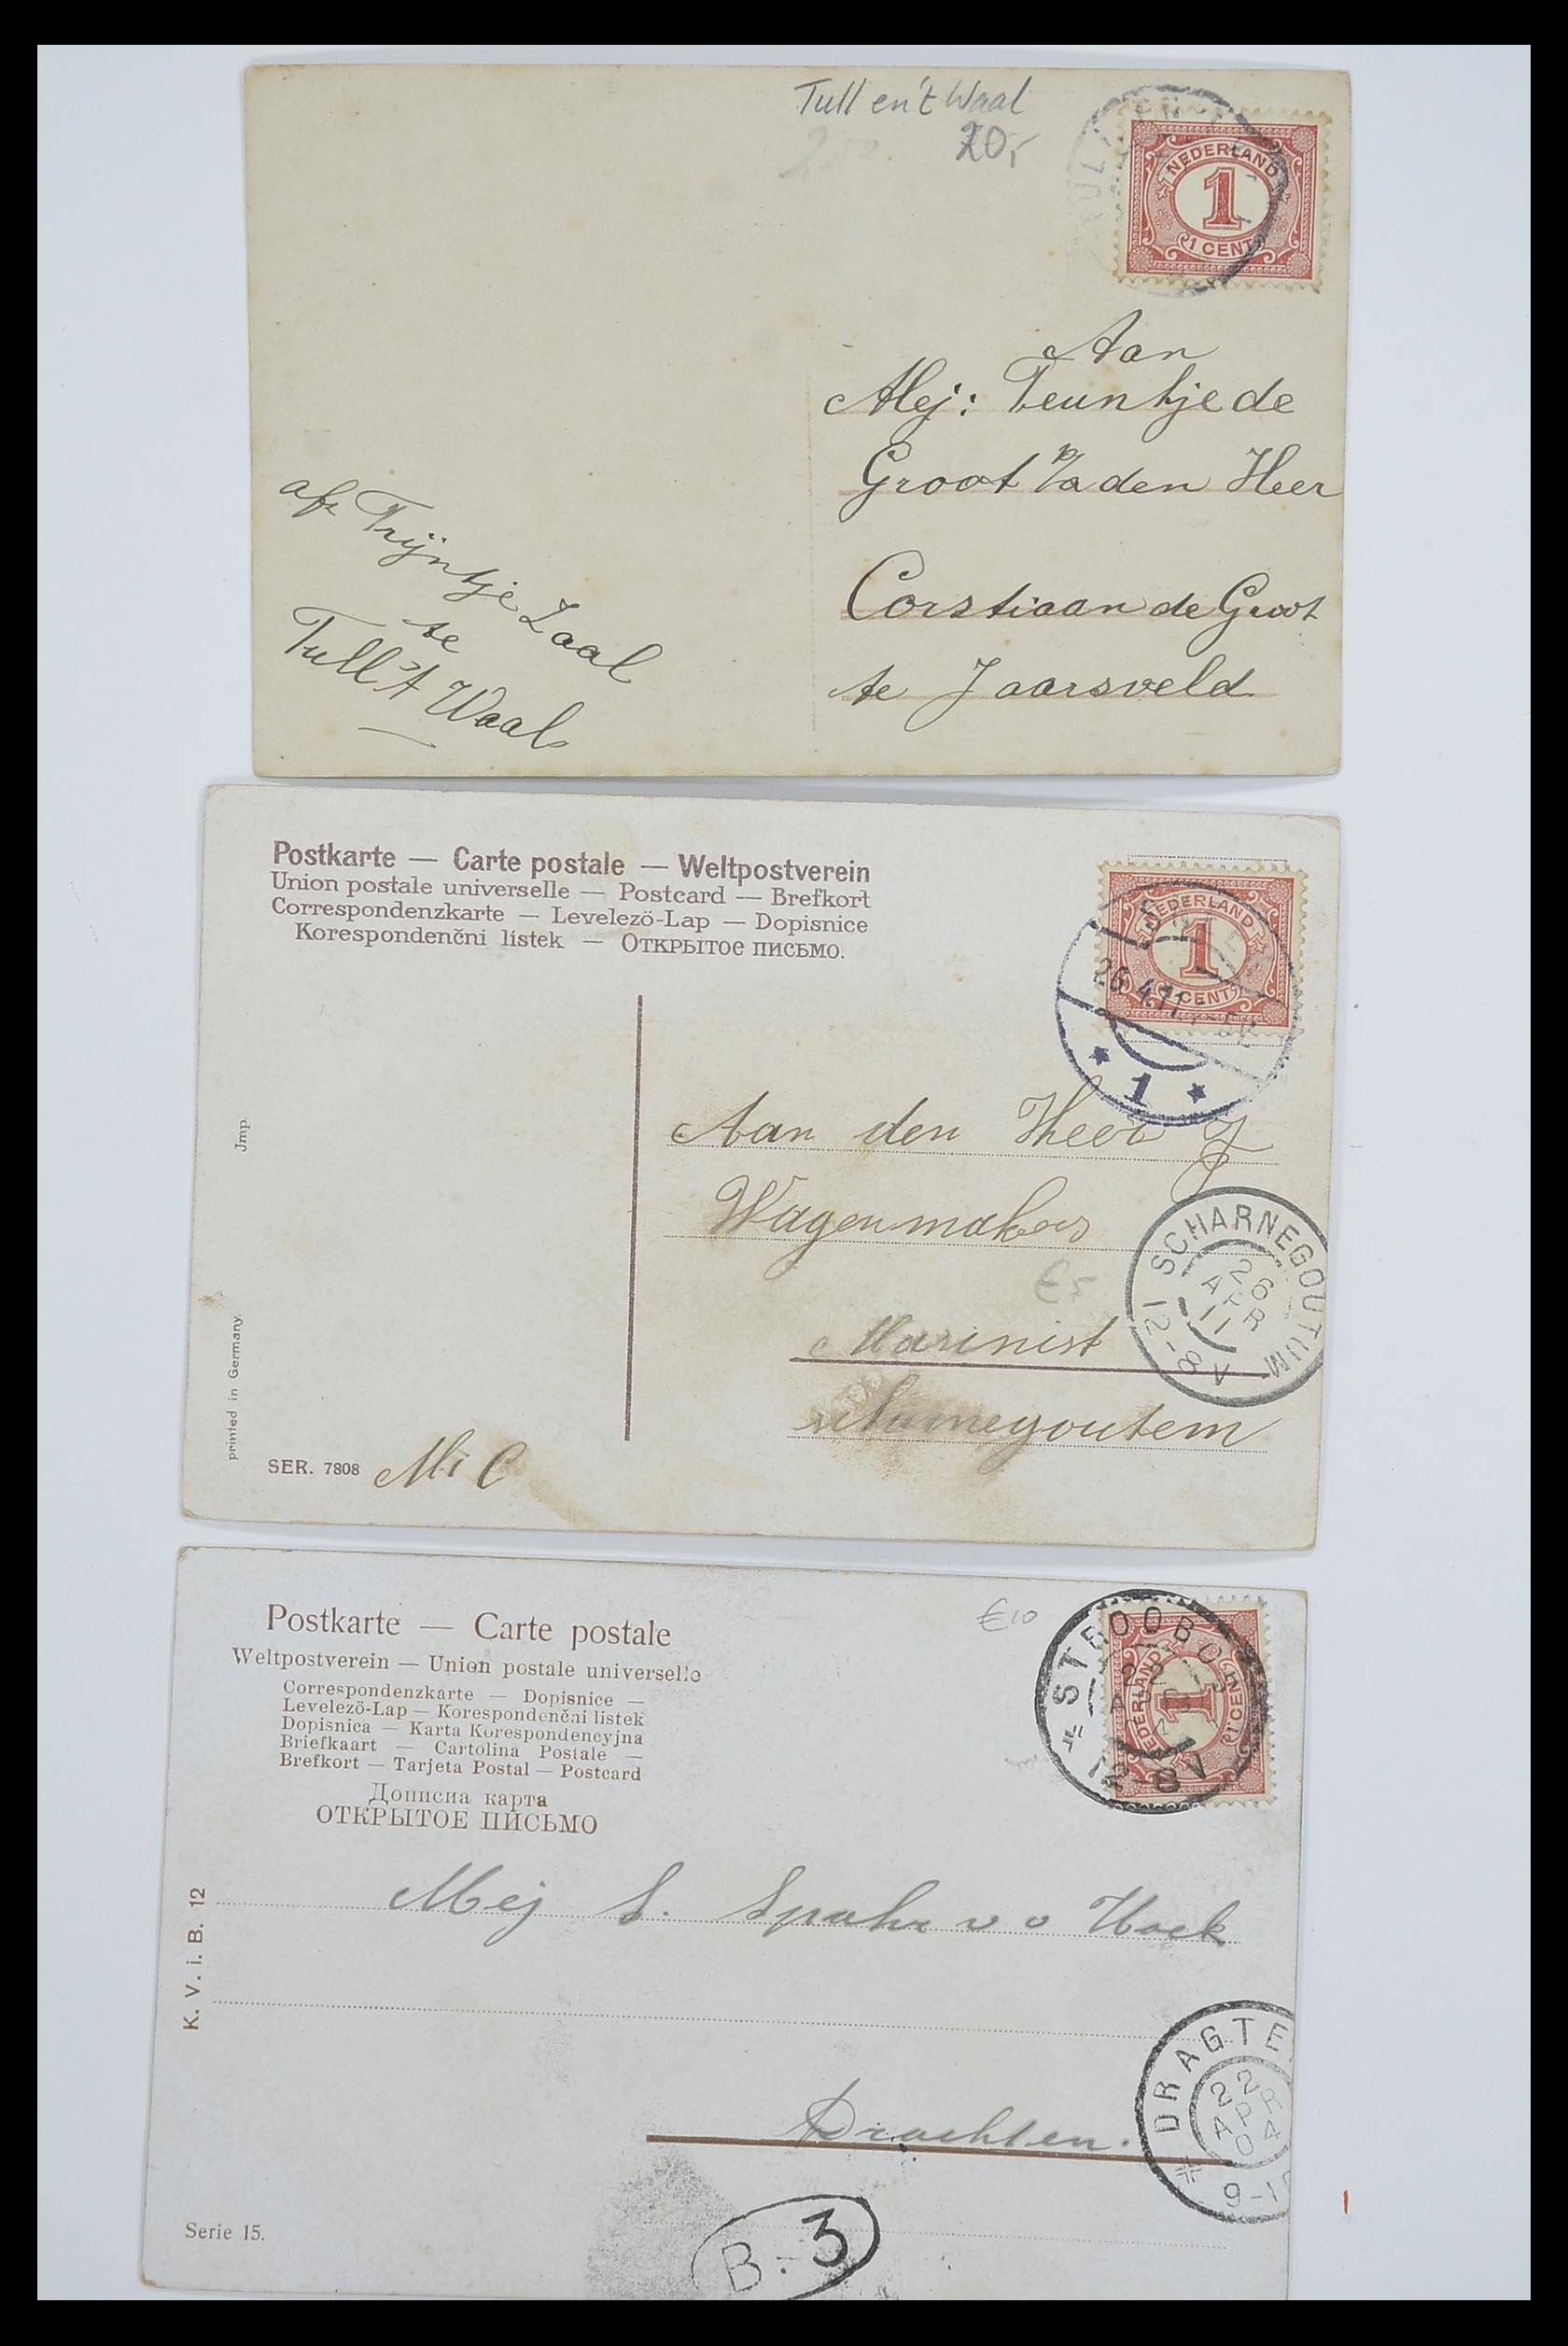 Tull en 't Waal
20,-
NEDERLAND
1
1 CENT
Aan
Mej: Teuntje de
Groot p/a den Heer
Corstiaan de Groot
te Jaarsveld
afz Trijntje Zaal
te
Tull 't Waal
Postkarte — Carte postale — Weltpostverein
Union postale universelle — Postcard — Brefkort
Correspondenzkarte — Levelezö-Lap — Dopisnice
Korespondenčni listek — Открытое письмо.
NEDERLAND
1
CENT
26.4.11
* 1 *
Aan den Heer J
Wagenmakers
€5
Marinist
SCHARNEGOUTUM
26
APR
11
12-8V
Jmp.
printed in Germany.
SER. 7808
Postkarte — Carte postale
Weltpostverein — Union postale universelle
Correspondenzkarte — Dopisnice —
Levelezö-Lap — Korespondenčni listek
Dopisnica — Karta Korespondencyjna
Briefkaart — Cartolina Postale —
Brefkort — Tarjeta Postal — Postcard
Дописна карта
ОТКРЫТОЕ ПИСЬМО
€10
STROOBOS
22
12-8V
NEDERLAND
1
1 CENT
Mej S. Spahr v d Hoek
K. V. i. B. 12
Drachten.
DRAGTE
22
APR
04
9-1
Serie 15.
B.- 3